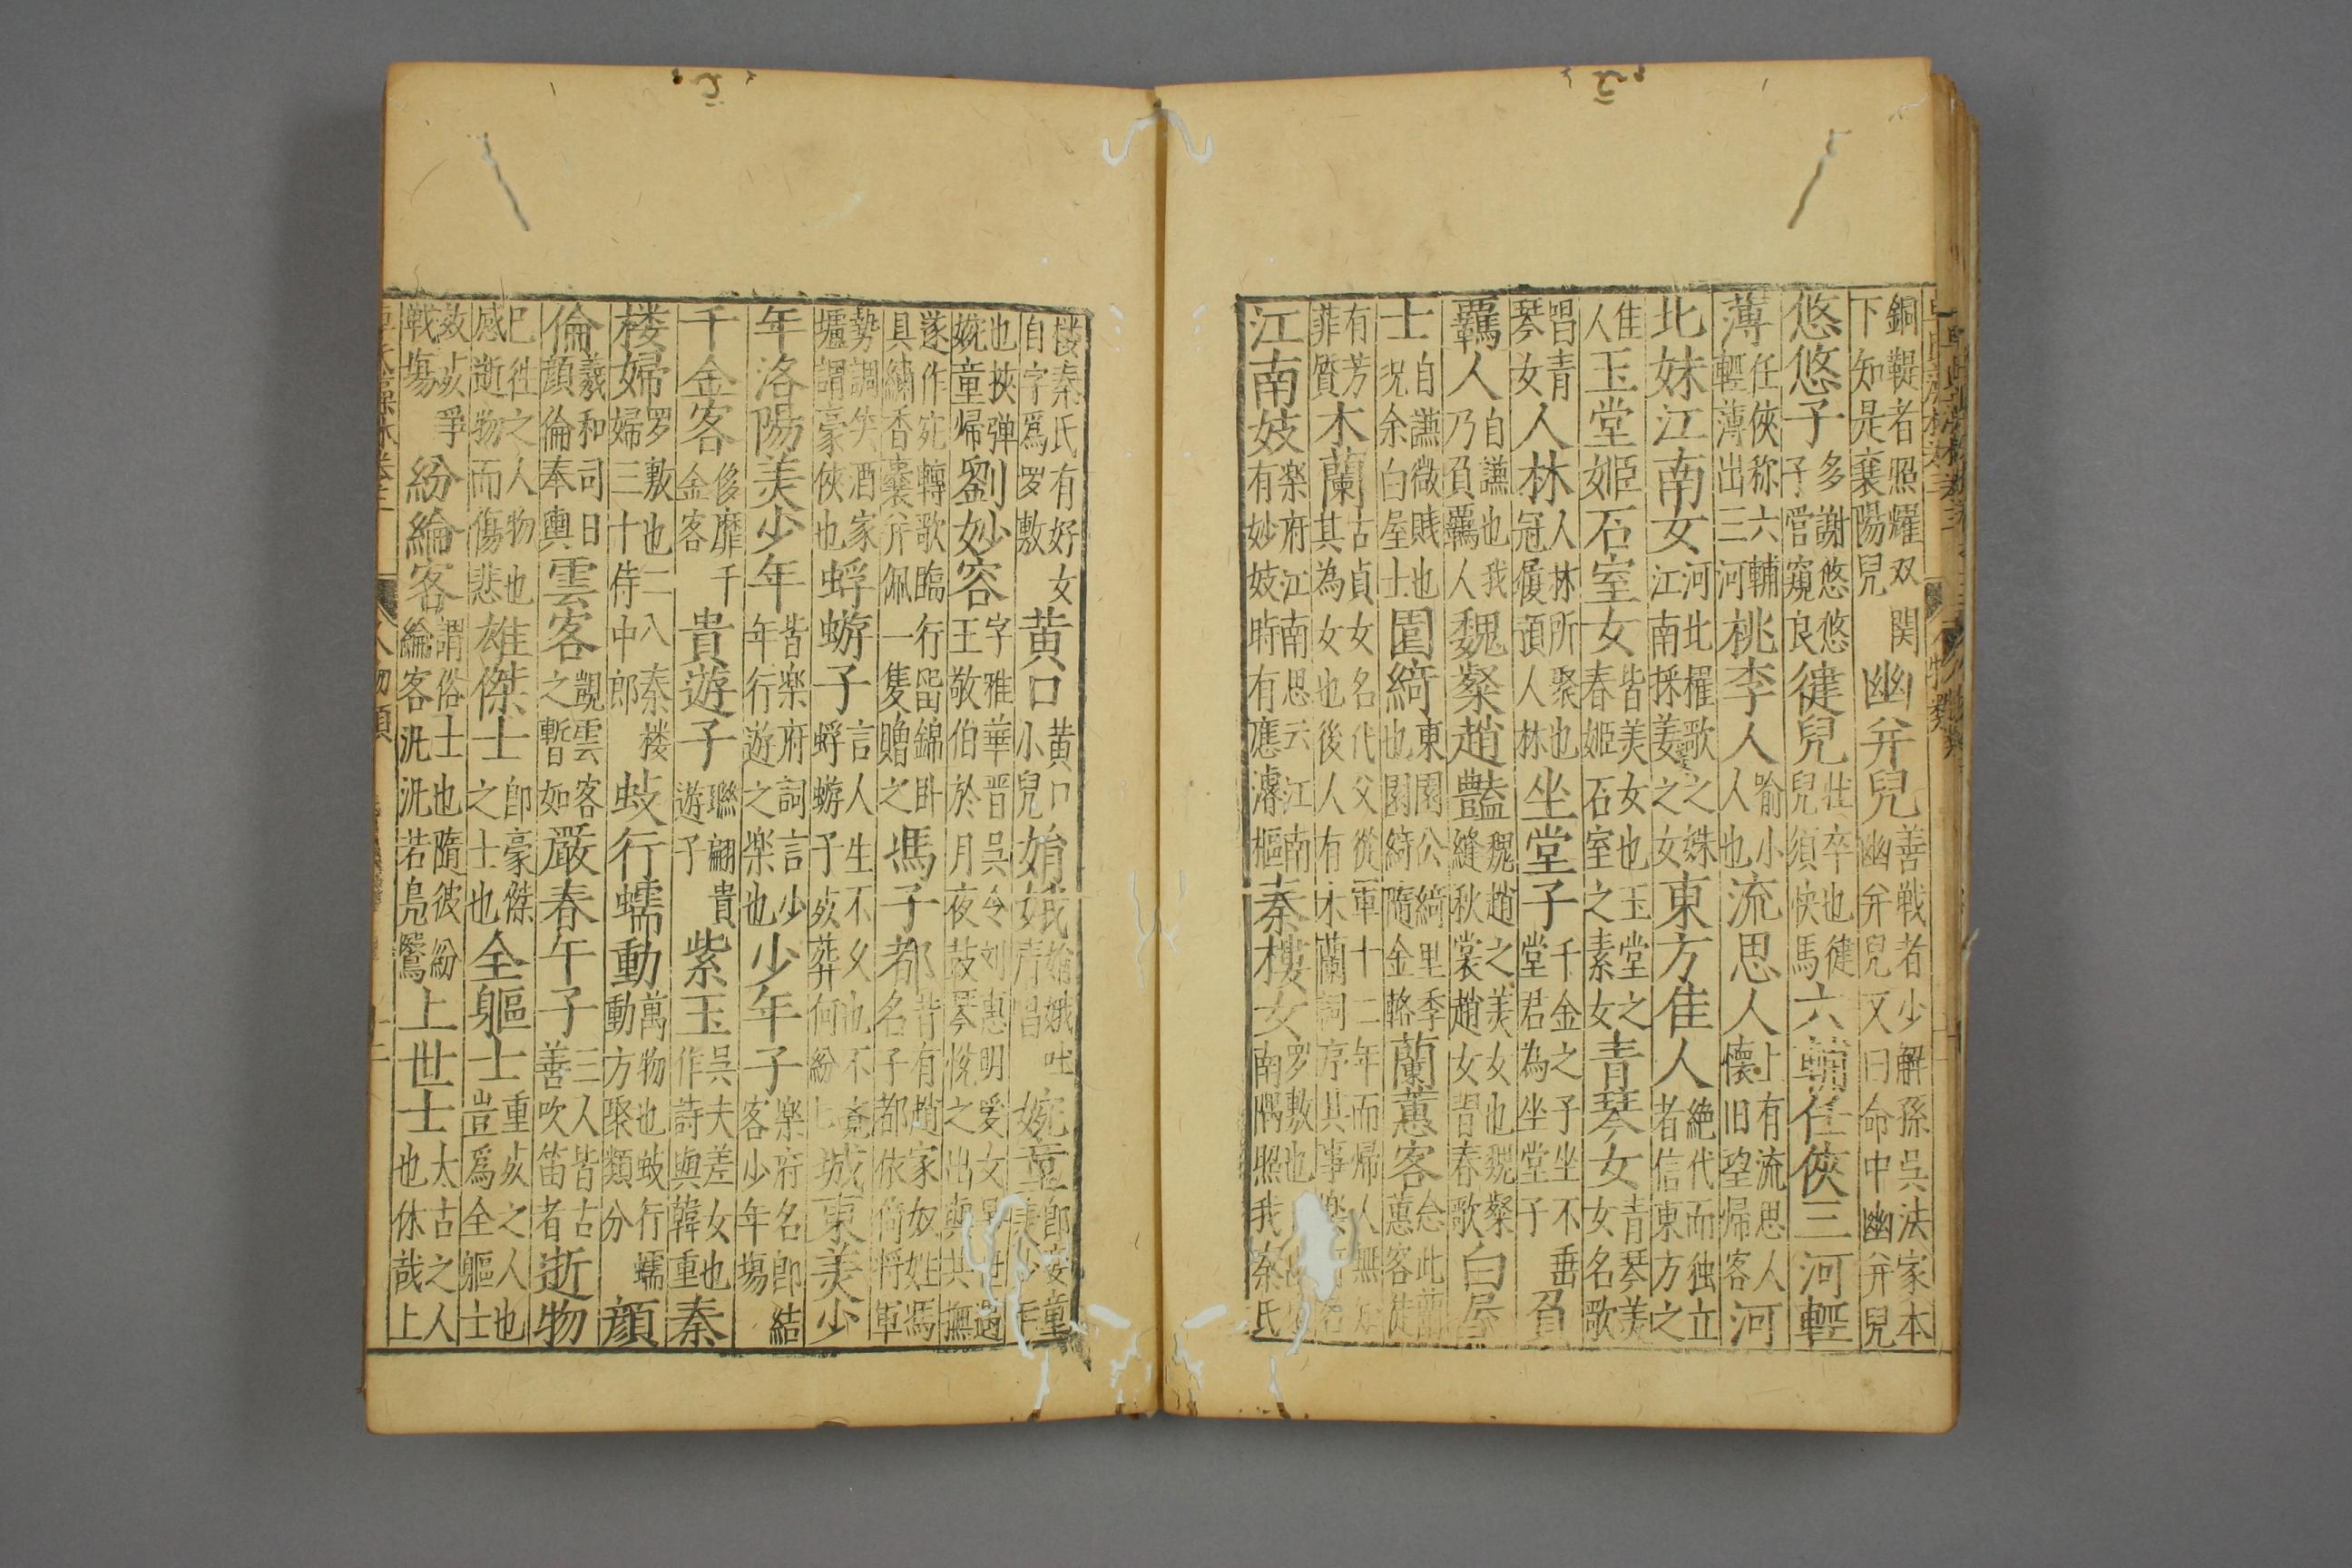 銅鞮者照耀双関下知是襄陽兒幽并兒善戦者少解孫呉法家本幽并兒又曰命中幽并兒
悠悠子多謝悠悠子窺良徤兒壮卒也徤兒須快馬六輔任俠三河輕
薄任俠称六輔輕薄出三河桃李人喻小人也流思人上有流思人懐旧望帰客河
北妹江南女河北櫂歌之姝江南採菱之女東方佳人絶代而独立者信東方之
佳人玉堂姬石室女皆美女也玉堂之春姬石室之素女青琴女青琴美女名歌
唱青琴女人林人林所聚也冠履頭人林坐堂子千金之子坐不垂堂君為坐堂子負
羈人自謙也我乃負羈人魏粲趙艶魏趙之美女也魏粲縫秋裳趙女習春歌白屋
士自謙微賎也況余白屋士園綺東園公綺里季也園綺隋金輅蘭蕙客怠此蘭蕙客徒
有芳菲質木蘭古貞女名代父從軍十二年而帰人無知其為女也後人有木蘭詞序其事楽名
江南妓楽府江南思云江南有妙妓時有應濬樞秦樓女罗敷也南隅照我秦氏
楼秦氏有好女自字爲罗敷黄口黄口小兒娋娥娋娥吐清唱婉童郎妾童美少年
也挾弹婉童帰劉妙容字雅華晋呉令刘惠明爱女早世過王敬伯於月夜鼓琴悅之出與共撫
遂作宛轉歌臨行畄錦卧具繡香囊并佩一隻贈之馮子都昔有趙家奴姓馮名子都依倚將軍
勢調笑酒家壚謂豪俠也蜉蝣子言人生不久也不意蜉蝣子死葬何紛匕城東美少
年洛陽美少年皆楽府詞言少年行遊之楽也少年子楽府名郎結客少年塲
千金客侈靡千金客貴遊子聯翩貴遊子紫玉呉夫差女也作詩與韓重秦
楼婦罗敷也二八秦楼婦三十侍中郎蚑行蠕動萬物也蚑行蠕動方聚類分顔
倫羲和司日顔倫奉輿雲客覬雲客之暫如嚴春午子三人皆古善吹笛者逝物
已徃之人物也感逝物而傷悲雄傑士即豪傑之士也全軀士重死之人也豈爲全軀士
效死爭戦塲紛綸客謂俗士也隋彼紛綸客汎汎若鳧鷖上世士太古之人也休哉上